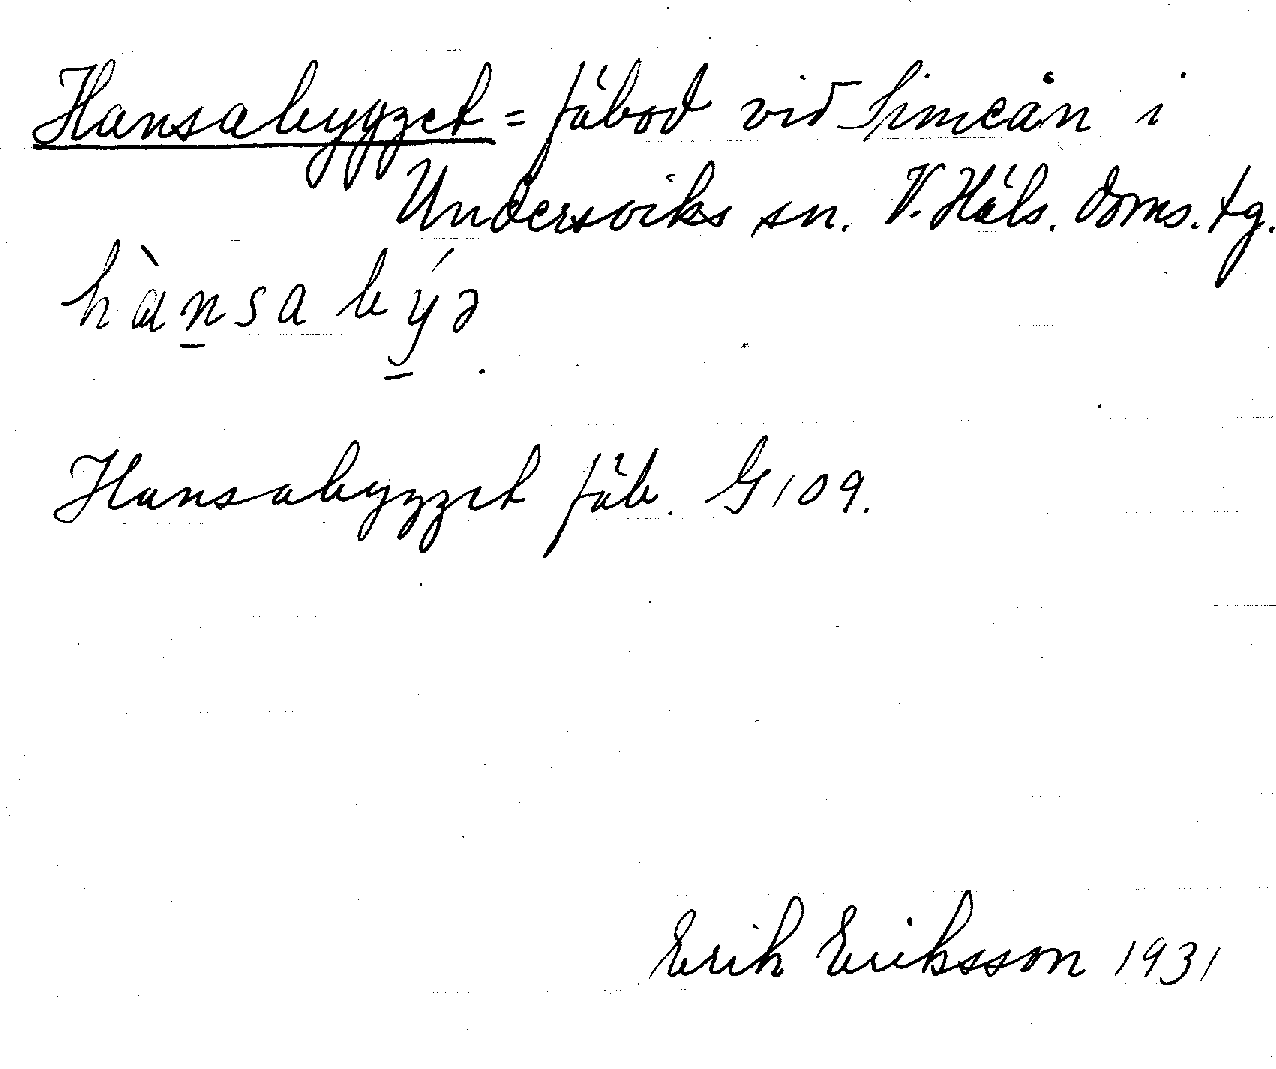 Hansabygget = fäbod vid Simeån i
Undersviks sn. V. Häls. doms. tg.
hànsabýə.
Hansabygget fäb. G 109.
Erik Eriksson 1931